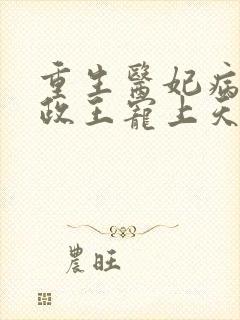 重生醫妃病
政王寵上天
農旺